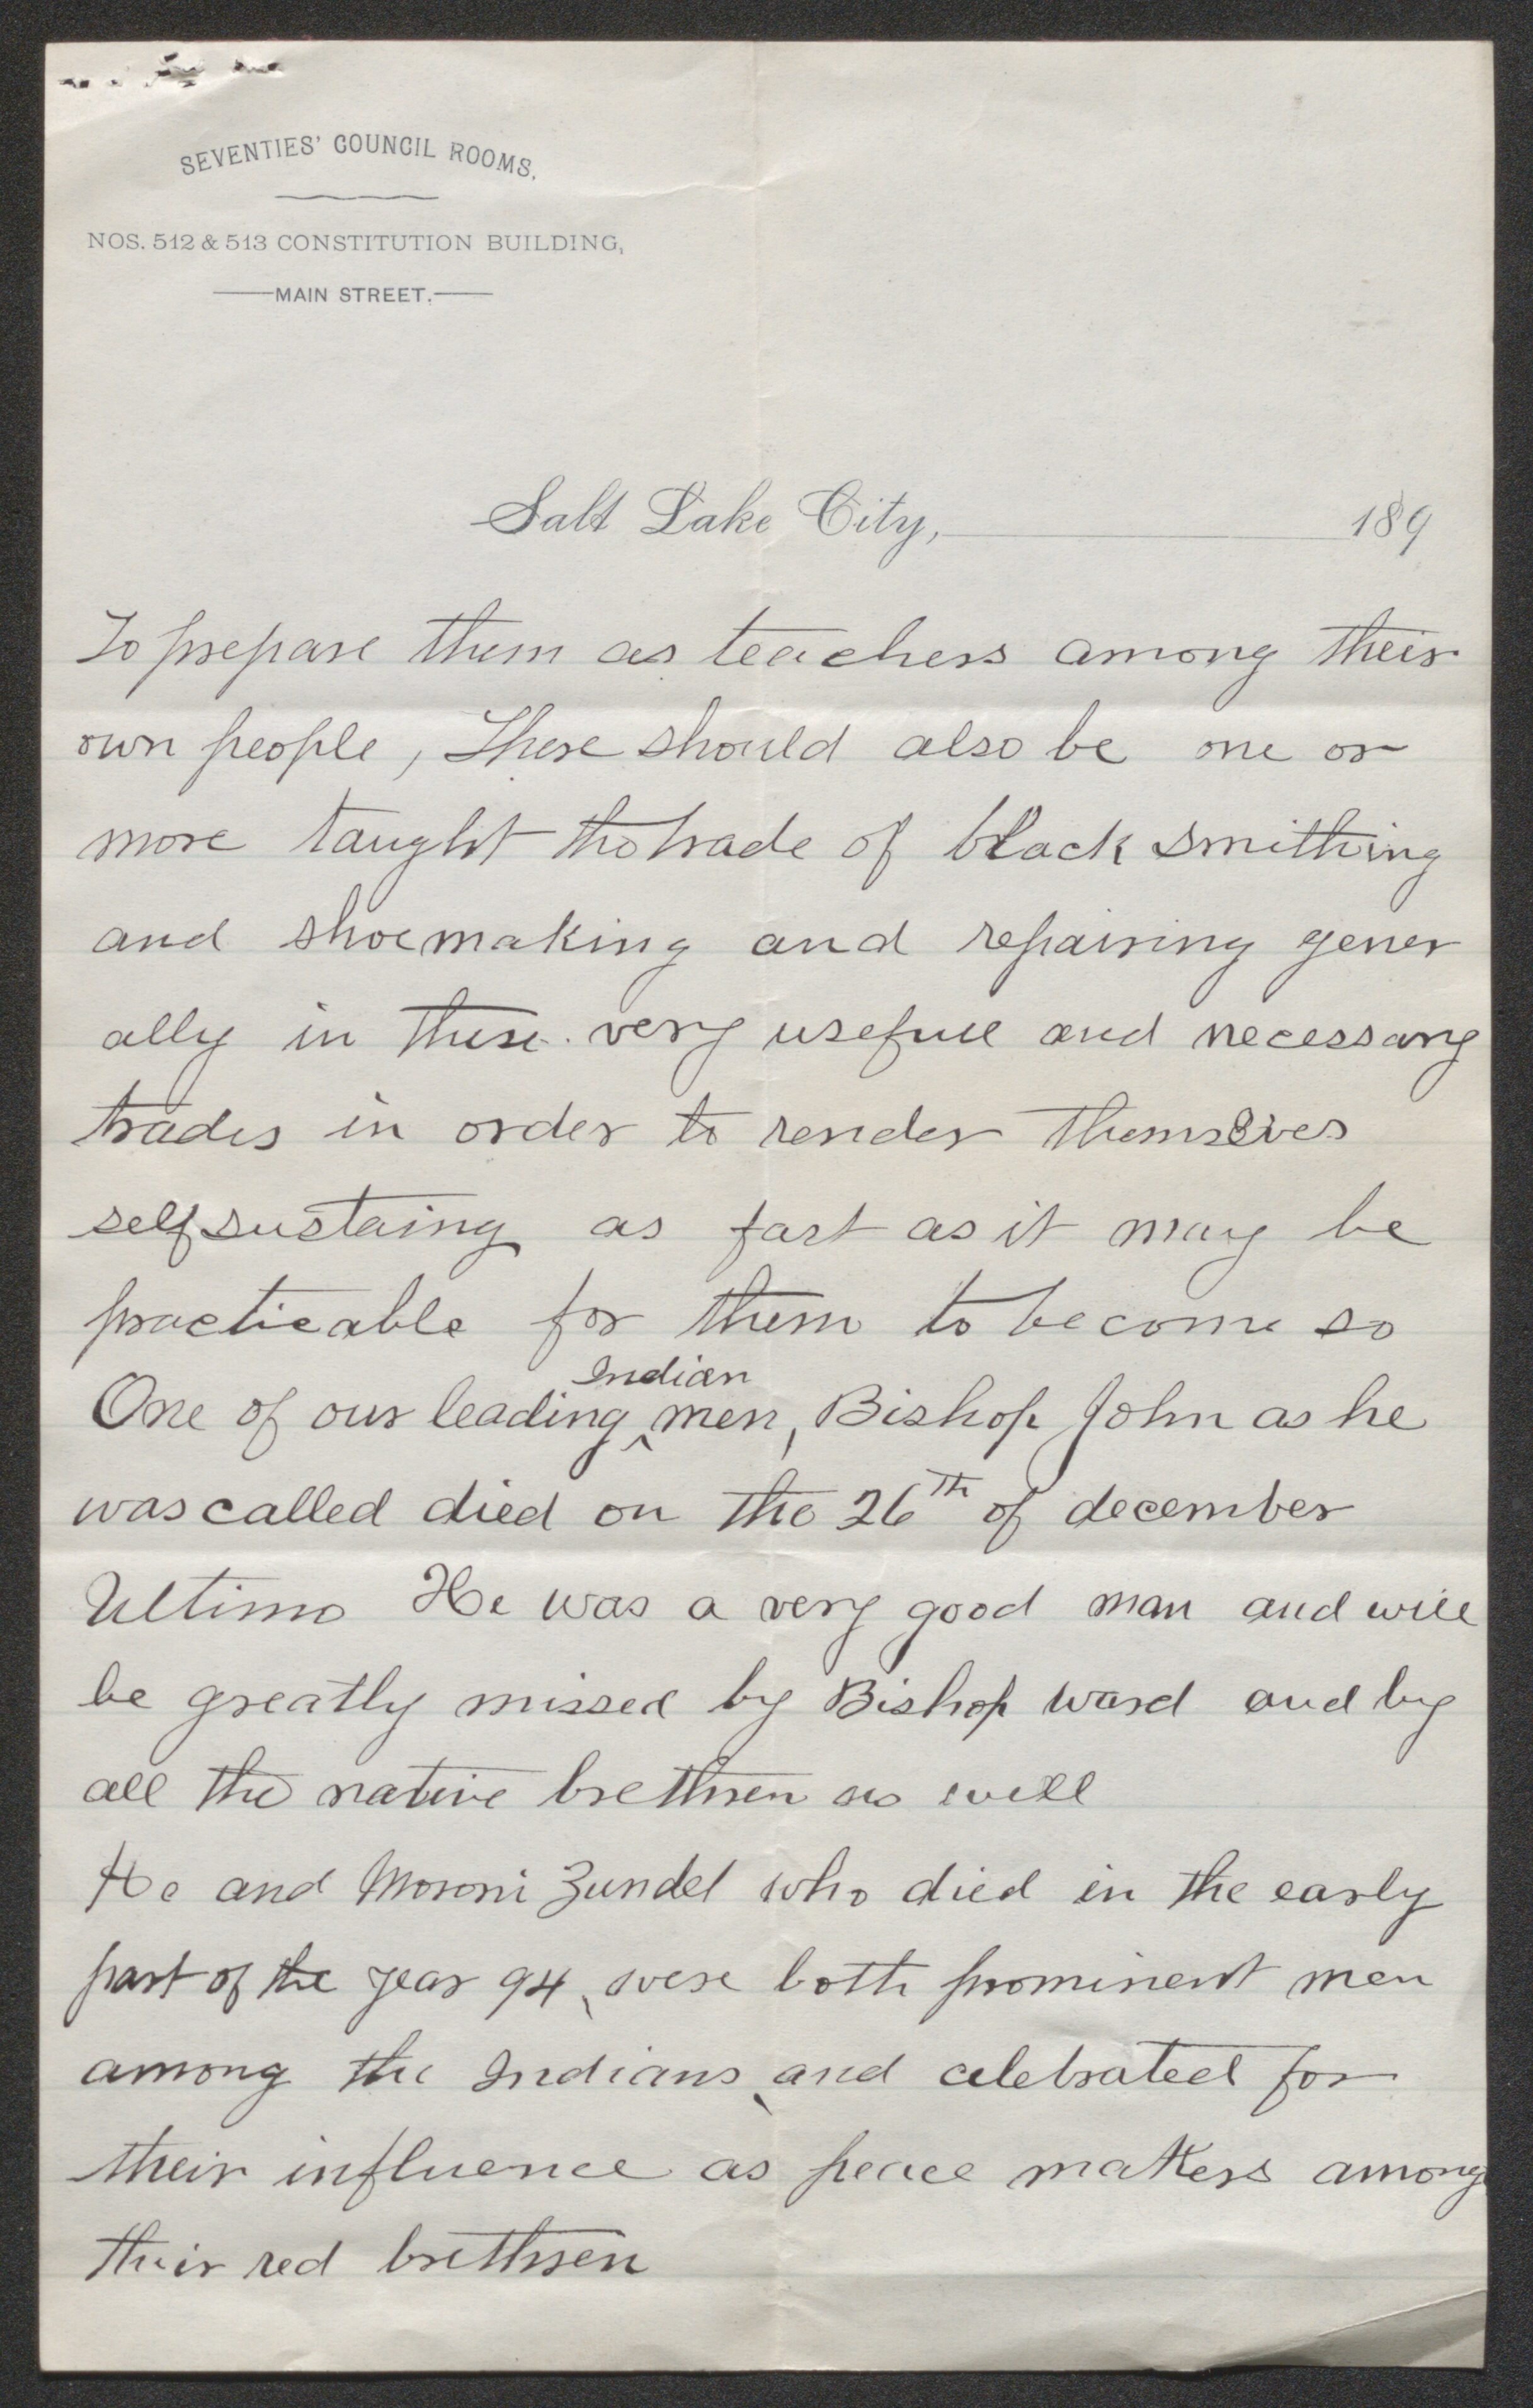 SEVENTIES' COUNCIL ROOMS.
NOS. 512 & 513 CONSTITUTION BUILDING,
MAIN STREET.
Salt Lake City, 189
To prepare them as teachers among their
own people, There should also be one or
more taught the trade of black smithing
and shoemaking and repairing gener
ally in these very usefull and necessary
trades in order to render themselves
selfsustaing as fast as it may be
practicable for them to become so
One of our leading ^ Indian men, Bishop John as he
was called died on the 26th of december
Ultimo He was a very good man and will
be greatly missed by Bishop Ward and by
all the native brethren as well
He and Moroni Zundel who died in the early
part of the year 94, were both prominent men
among the Indians, and celebrated for
their influence as peace makers among
their red brethren